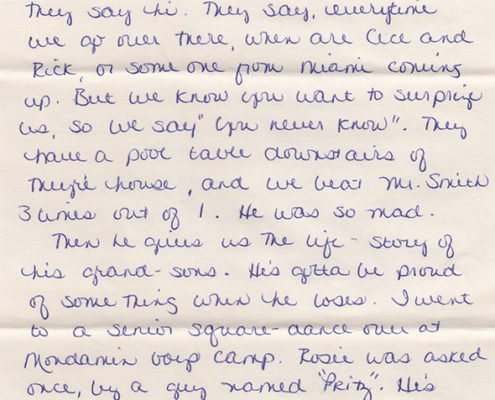 They say hi. They say, everytime
we go over there, when are Cece and
Rick, or some one from Miami coming
up. But we know you want to surprize
us, so we say "you never know". They
have a pool table downstairs of
there house, and we beat Mr. Smith
3 times out of 1. He was so mad.
Then he gives us the life-story of
his grand-sons. He's gotta be proud
of some thing when he loses. I went
to a senior square-dance over at
Mondamin camp. Rosie was asked
once, by a guy named "Pritz". He's